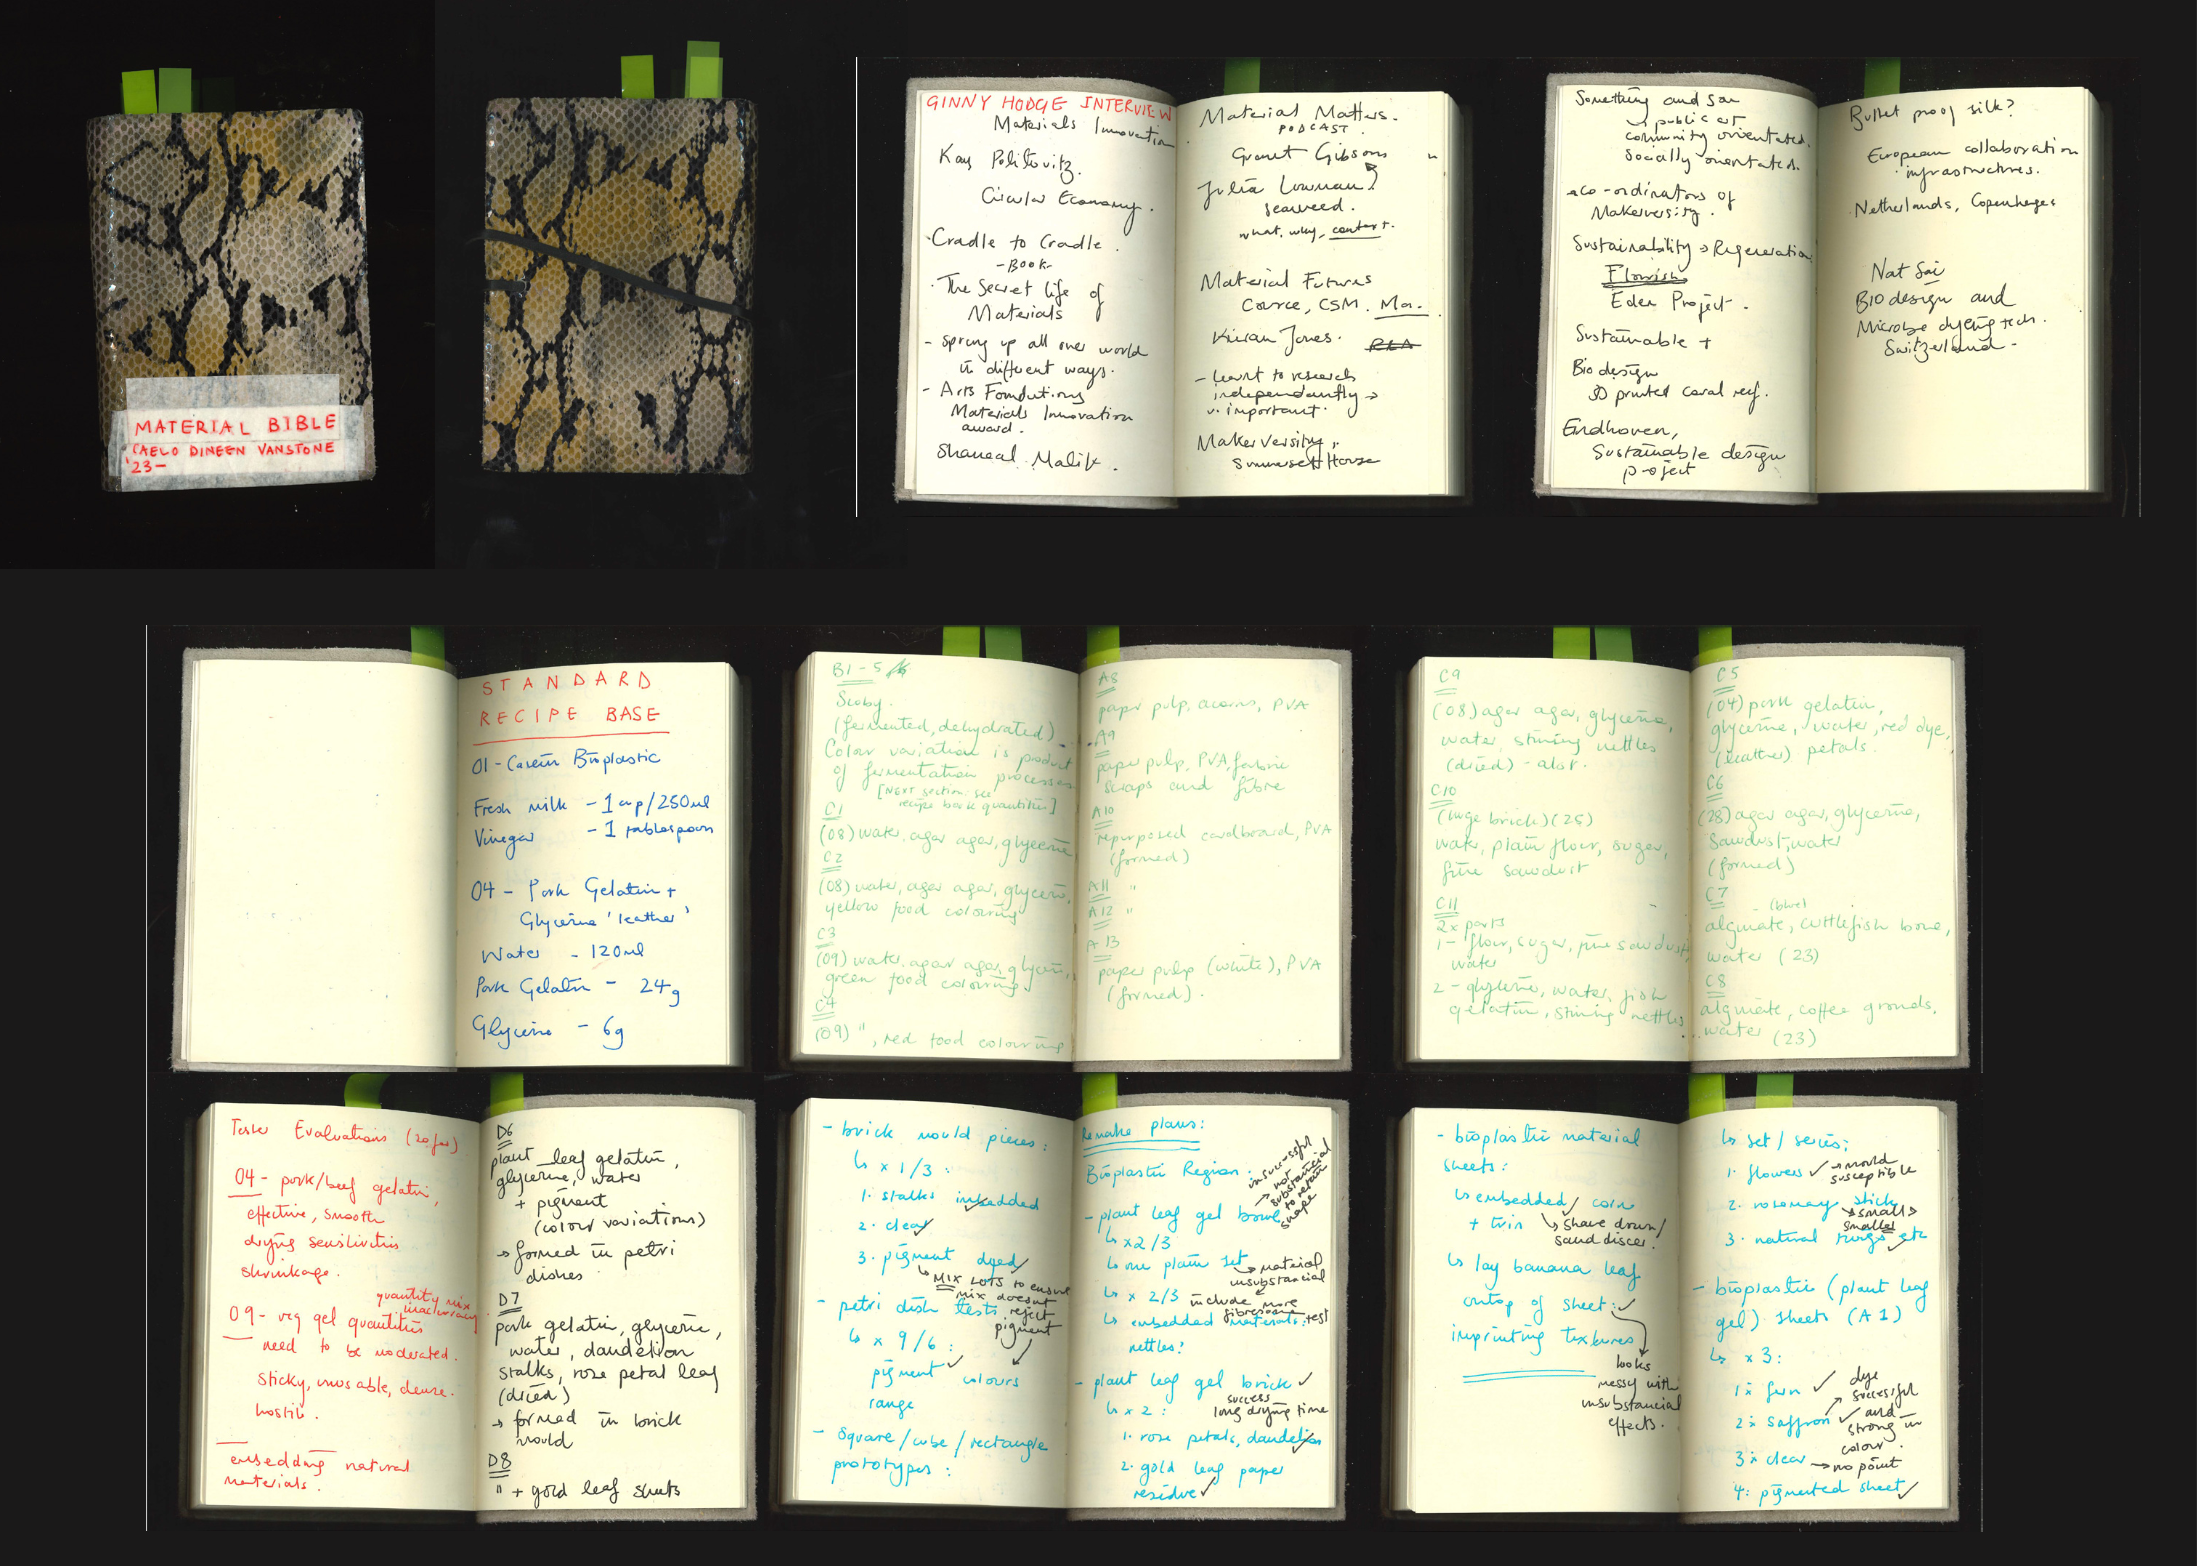 MATERIAL BIBLE
CAELO DINEEN VANSTONE
'23-
GINNY HODGE INTERVIEW
Materials Innovation
Kay Politovitz.
Circular Economy.
Cradle to Cradle.
-BOOK-
The Secret life of
Materials
- sprung up all over world
in different ways.
- Arts Foundations
Materials Innovation
award.
Shaneal Malik.
Material Matters.
PODCAST.
Grant Gibson
Julia Lowman?
seaweed.
what, why, context.
Material Futures
Cource, CSM. Ma.
Kieran Jones.
- learnt to research
independantly →
v. important.
Makerversity,
Summersett House
Something and Son
↳ public art
community orientated.
Socially orientated.
co-ordinators of
Makerversity.
Sustainability → Regeneration
Flourish
Eden Project.
Sustainable +
Bio design
3D printed coral reef.
Eindhoven,
Sustainable design
project
Bullet proof silk?
European collaboration
infrastructures.
Netherlands, Copenhagen
Nat Sai
BIO design and
Microbe dyeing tech.
Switzerland -
STANDARD
RECIPE BASE
01 - Casein Bioplastic
Fresh milk - 1 cup/250ml
Vinegar - 1 tablespoon
04 - Pork Gelatin +
Glycerine 'leather'
Water - 120ml
Pork Gelatin - 24g
Glycerine - 6g
B1 - 5
Scoby.
(fermented, dehydrated)
Colour variation is product
of fermentation processes
[NEXT section: see
recipe book quantities]
C1
(08) water, agar agar, glycerine
C2
(08) water, agar agar, glycerin,
yellow food colouring
C3
(09) water, agar agar, glycerin,
green food colouring
C4
(09) ", red food colouring
A8
paper pulp, acorns, PVA
A9
paper pulp, PVA, fabric
scraps and fibre
A10
repurposed cardboard, PVA
(formed)
A11 "
A12 "
A13
paper pulp (white), PVA
(formed).
C9
(08) agar agar, glycerine,
water, stinging nettles
(dried) - alot.
C10
(huge brick) (25)
water, plain flour, sugar,
fine sawdust
C11
2x parts
1 - flour, sugar, fine sawdust,
water
2 - glycerine, water, fish
gelatin, stinging nettles
C5
(04) pork gelatin,
glycerine, water, red dye,
(leather) petals.
C6
(28) agar agar, glycerine,
Sawdust, water
(formed)
C7
(blue)
alginate, cuttlefish bone,
water (23)
C8
alginate, coffee grounds,
water (23)
Tester Evaluations (so far)
04 - pork/beef gelatin,
effective, smooth
drying sensitivities
shrinkage.
quantity mix
inaccuracy
09 - veg gel quantities
need to be moderated.
sticky, unusable, dense.
hostile.
embedding natural
materials.
D6
plant leaf gelatin,
glycerine, water
+ pigment
(colour variations)
→ formed in petri
dishes
D7
pork gelatin, glycerine,
water, dandelion
stalks, rose petal leaf
(dried)
→ formed in brick
mould
D8
" + gold leaf sheets
- brick mould pieces:
↳ x 1/3:
1. stalks imbedded
2. clear ✓
3. pigment dyed ✓
↳ MIX LOTS to ensure
mix doesnt
reject
pigment
- petri dish tests
↳ x 9/6:
pigment ✓ colours
range
- square/cube/rectangle
prototypes:
Remake plans:
Bioplastic Region:
unsuccessful
→ not
substancial
to retain
shape
- plant leaf gel bowl
↳ x 2/3
↳ one plain set
→ material
unsubstancial
↳ x 2/3
include more
fibresome
↳ embedded materials: test
nettles?
- plant leaf gel brick ✓
success
long drying time
↳ x 2:
1. rose petals, dandelion ✓
2. gold leaf paper
residue ✓
- bioplastic material
sheets:
↳ embedded ✓ coin
+ twin
↳ shave down/
sand discer.
↳ lay banana leaf
ontop of sheet: ✓
imprinting textures
looks
messy with
unsubstancial
effects.
↳ set/series:
1. flowers ✓ → mould
susceptible
2. rosemary stick
→ small →
smaller
3. natural rings etc ✓
- bioplastic (plant leaf
gel) sheets (A1)
↳ x 3:
1 x fern ✓
2 x saffron ✓
dye
successful
and
strong in
colour.
3 x clear → no point
4: pigmented sheet ✓